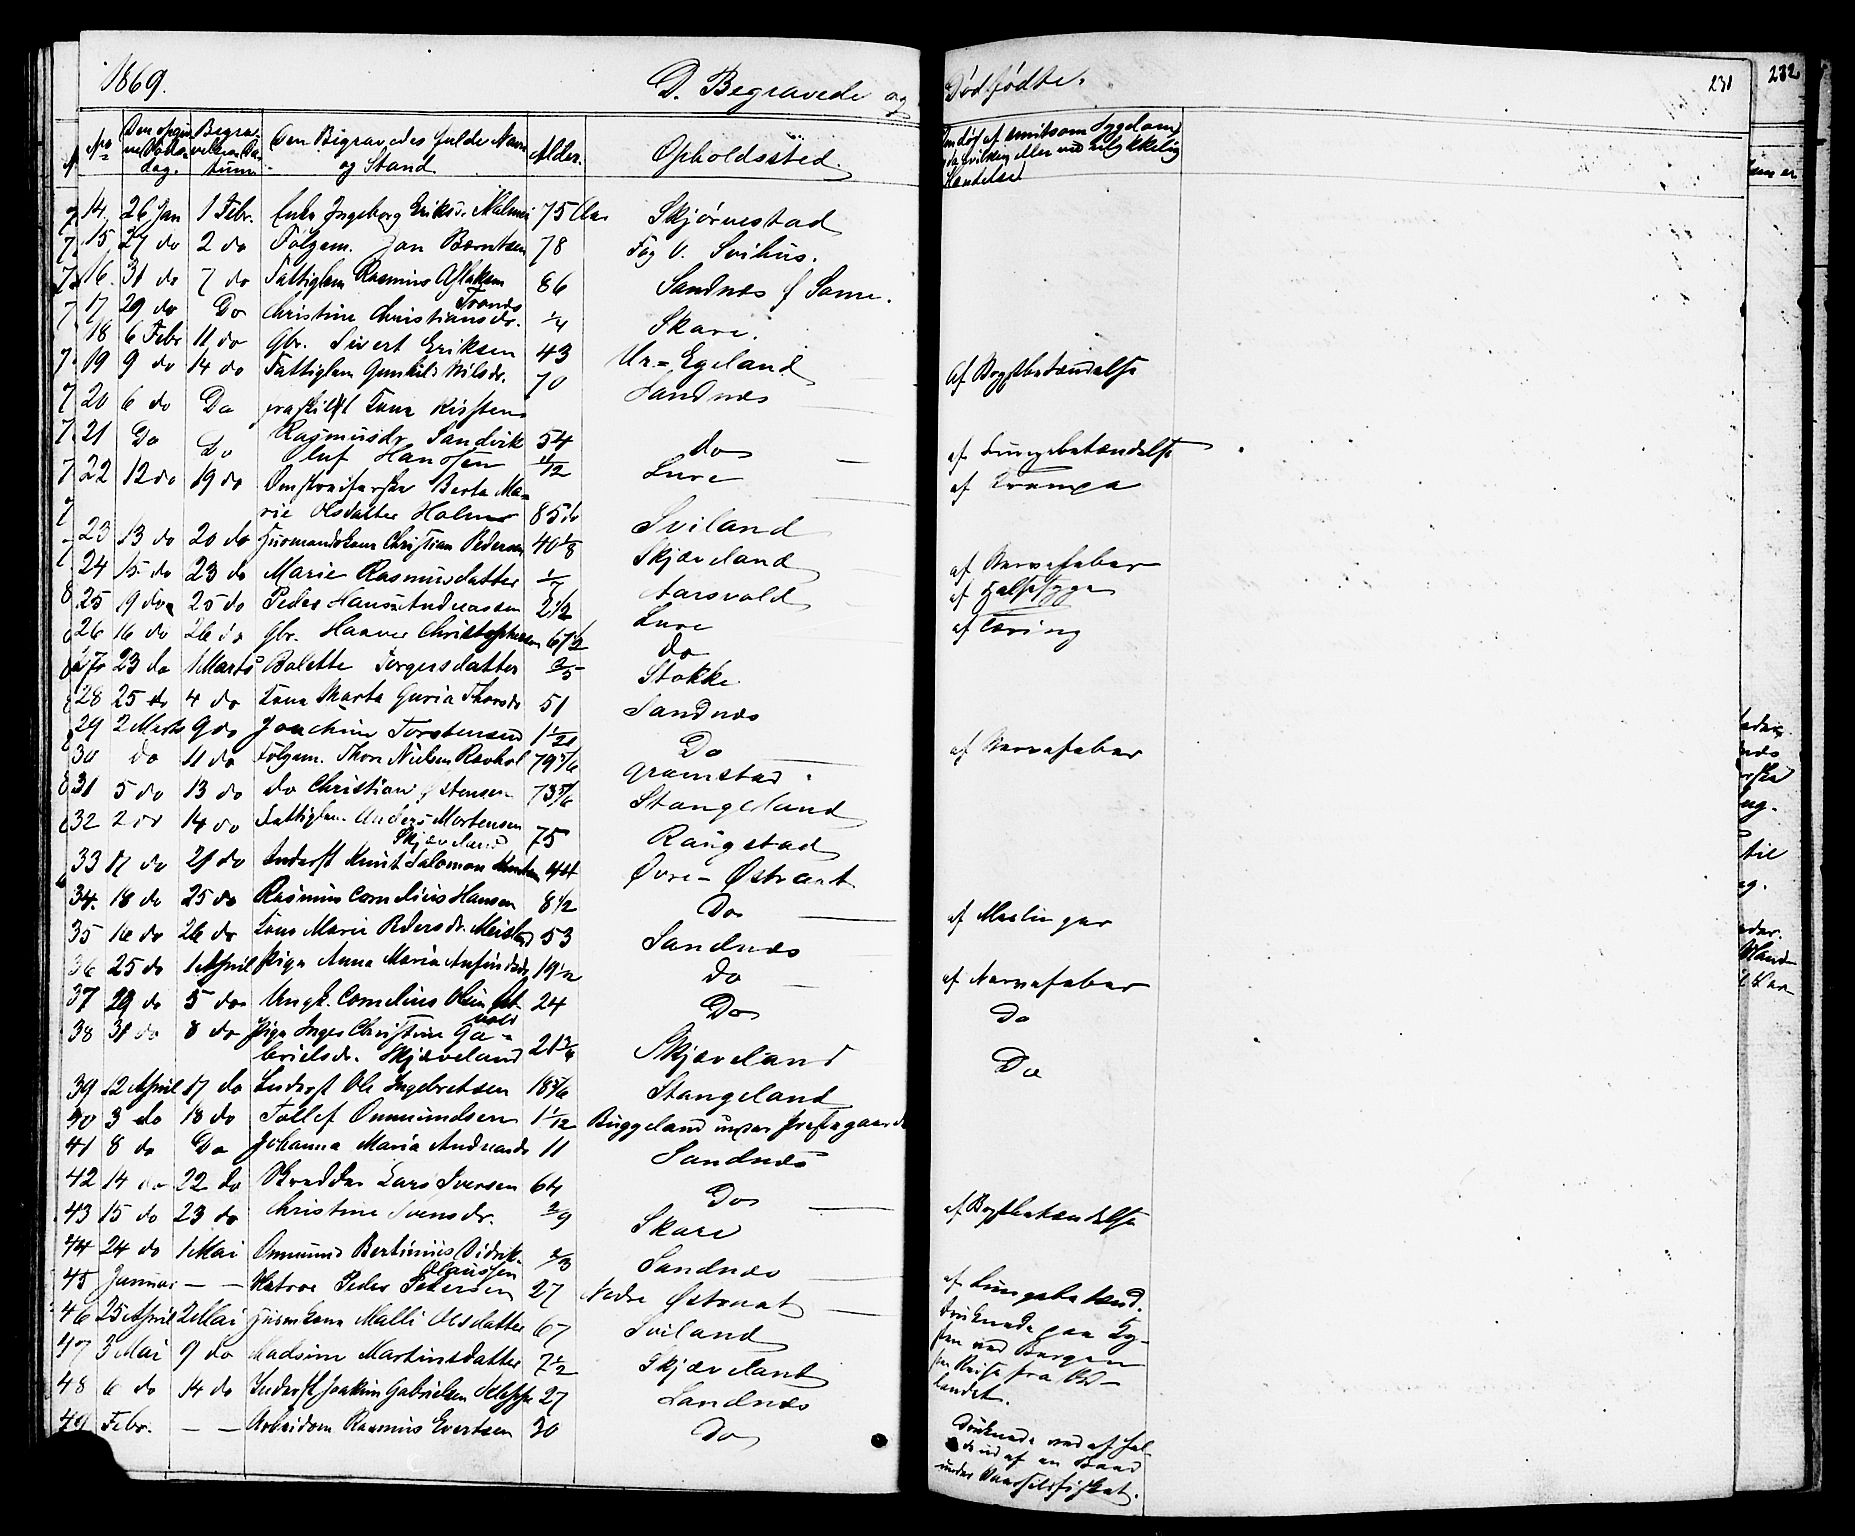 1869.
D. Begravede og Dødfødte.
231
232
No
Begravelsens Datum
Den Begravedes fulde Navn og Stand
Alder.
Opholdssted.
14. 26 Jan 1 Febr. Enke Ingeborg Eriksd. Malmei 75 Aar Skjørnestad
15 27 do 2 do Folgem. Jan Berntsen 78 Fog V. Svihus.
16. 31 do 7 do Fattiglem Rasmus Aslaksen Tronæs 86 Sandnes f Some.
17 29 do Do Christine Christiansdr. 1/4 Skare.
18 6 Febr 11 do Gbr. Sivert Eriksen 43 Ur-Egeland
19 9 do 14 do Fattiglem Gunhild Nilsdr. 70 Sandnes af Brystbetændelse
20 6 do Do fraskilt Kone Kirsten Rasmusdr Sandvik 54 do af Lungebetændelse
21 Do Do Oluf Hansen 1/12 Lure af Krampe
22 12 do 19 do Berte Marie Olsdatter Holme 85 do Sviland
23 13 do 20 do Huusmandskone Christian Pedersen 40 1/8 Skjæveland af Nervefeber
24 15 do 23 do Marie Rasmusdatter Aarsvold af Halssyge
25 19 do 25 do Peder Hans Andreassen 2 1/2 Lure af Tæring
26 16 do 26 do Gbr. Haaver Christophersen 67 1/2 do
27 23 do 1 Marts Bolette Torgersdatter 2/5 Stokke.
28 25 do 4 do Kone Marta Guria Thorsdr 51 Sandnes
29 2 Marts 9 do Joachim Torstensen 1 1/21 Do af Nervefeber
30 do 11 do Folgem. Thore Nielsen Ravhol 79 5/6 Gramstad
31 5 do 13 do do Christian Østensen 73 5/6 Stangeland
32 2 do 14 do Fattiglem Anders Mortensen Skjæveland 75 Raugstad
33 17 do 21 do Inderst Knut Salomon Knutsen 44 Øvre-Østraat
34. 18 do 25 do Rasmus Cornelius Hansen 8 1/2 Do af Meslinger
35 16 do 26 do Kone Marie Pedersdr. 53 Sandnes
36 25 do 1 April Pige Anna Maria 19 1/2 do af Nervefeber
37 29 do 5 do Ungk. Cornelius Olsen 24 Do do
38 31 do 8 do Pige Inger Christine Gabrielsdr. Skjæveland 21 3/4 Skjæveland Do
39 12 April 17 do Inderst Ole Ingebretsen 18 5/6 Stangeland
40 3 do 18 do Tollef Ommundsen 1 1/12 Buggeland under Præstegaarden
41 8 do Do Johanna Maria Andreasdr 11 Sandnes
42 14 do 22 do Skrædder Lars Iversen 64 Do af Brystbetændelse
43 15 do 23 do Christine Svensdr. 2/9 Skare
44 24 do 1 Mai Ommund Bertinius Didrik Clausen 2/3 Sandnes af Lungebetænd.
45 Januar — — Matros Peder Petersen 27 Nedre Østraat druknede paa Kysten ved Bergen paa Reise fra Udlandet.
46 25 April 2 Mai Huusmkone Malli Olsdatter 67 Sviland
47 3 Mai 9 do Madsine Martinsdatter 7 1/2 Skjæveland
48 6 do 14 do Inderst Joakim Gabrielsen Kleppe 27 Sandnes
49 Febr. — — Arbeidsm Rasmus Evertsen 30 Do Druknede ved at falde ud af en Baad under Vaarsildfisket.